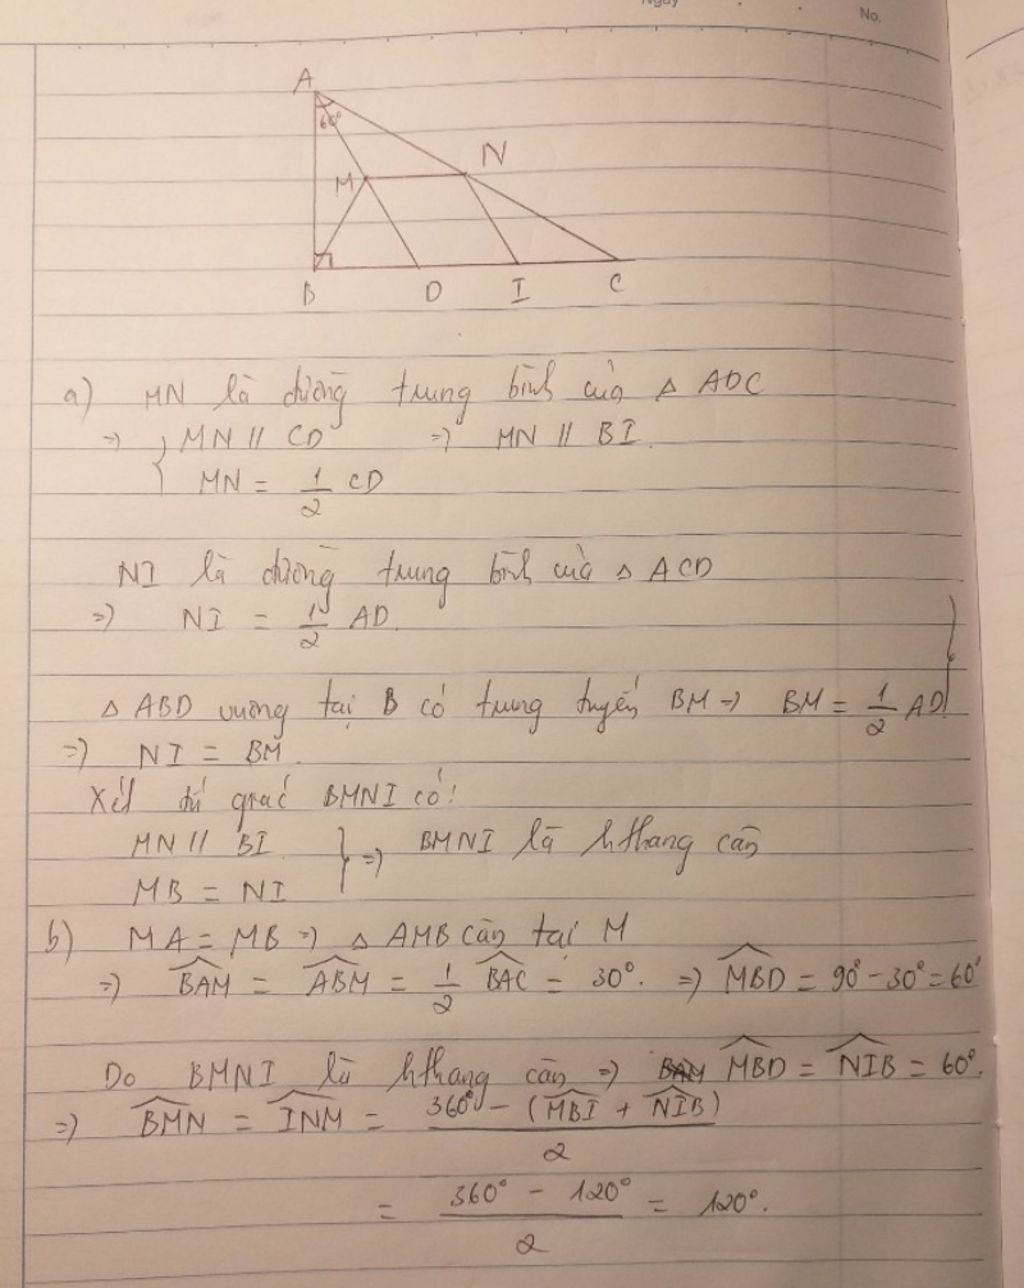 Ngày
No.
A
60°
M
N
B
D
I
C
a) MN là đường trung bình của Δ ADC
=> { MN // CD => MN // BI.
MN = 1/2 CD
NI là đường trung bình của Δ ACD
=> NI = 1/2 AD.
Δ ABD vuông tại B có trung tuyến BM => BM = 1/2 AD
=> NI = BM.
Xét tứ giác BMNI có:
MN // BI
MB = NI
} => BMNI là hthang cân
b) MA = MB => Δ AMB cân tại M
=> \widehat{BAM} = \widehat{ABM} = 1/2 \widehat{BAC} = 30°. => \widehat{MBD} = 90° - 30° = 60°
Do BMNI là hthang cân => \widehat{MBD} = \widehat{NIB} = 60°.
=> \widehat{BMN} = \widehat{INM} = (360° - (\widehat{MBI} + \widehat{NIB})) / 2
= (360° - 120°) / 2 = 120°.